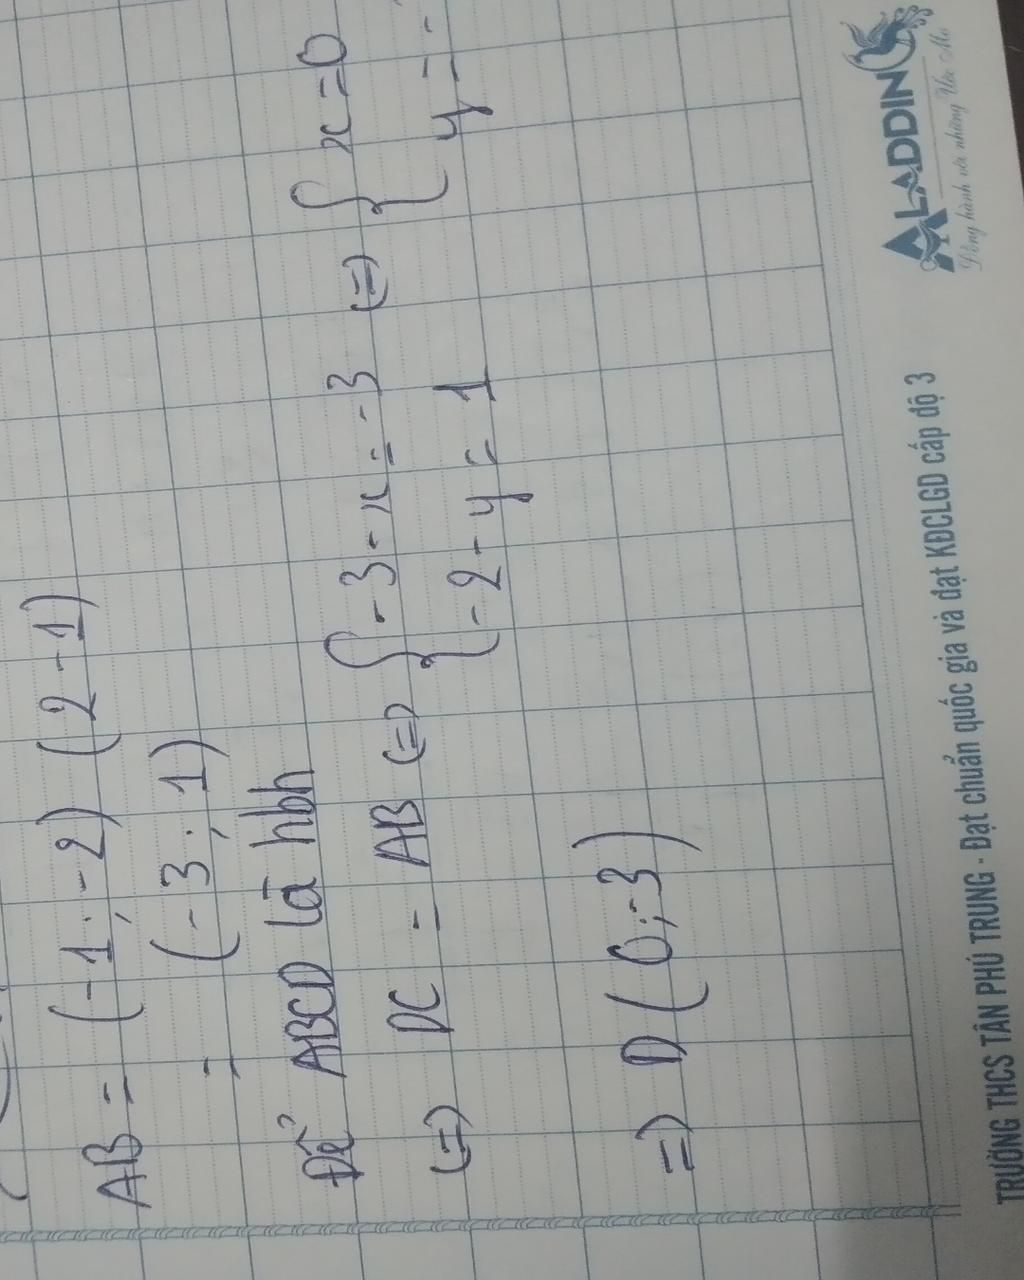 AB = (-1; -2) (2 -1)
= (-3; 1)
Để ABCD là hbh
(=) DC = AB (=) { -3 - x = -3 (=) { x = 0
-2 - y = 1 y = -
=) D (0; -3)
TRƯỜNG THCS TÂN PHÚ TRUNG - Đạt chuẩn quốc gia và đạt KĐCLGD cấp độ 3
ALADDIN
Đồng hành với những Ước Mơ